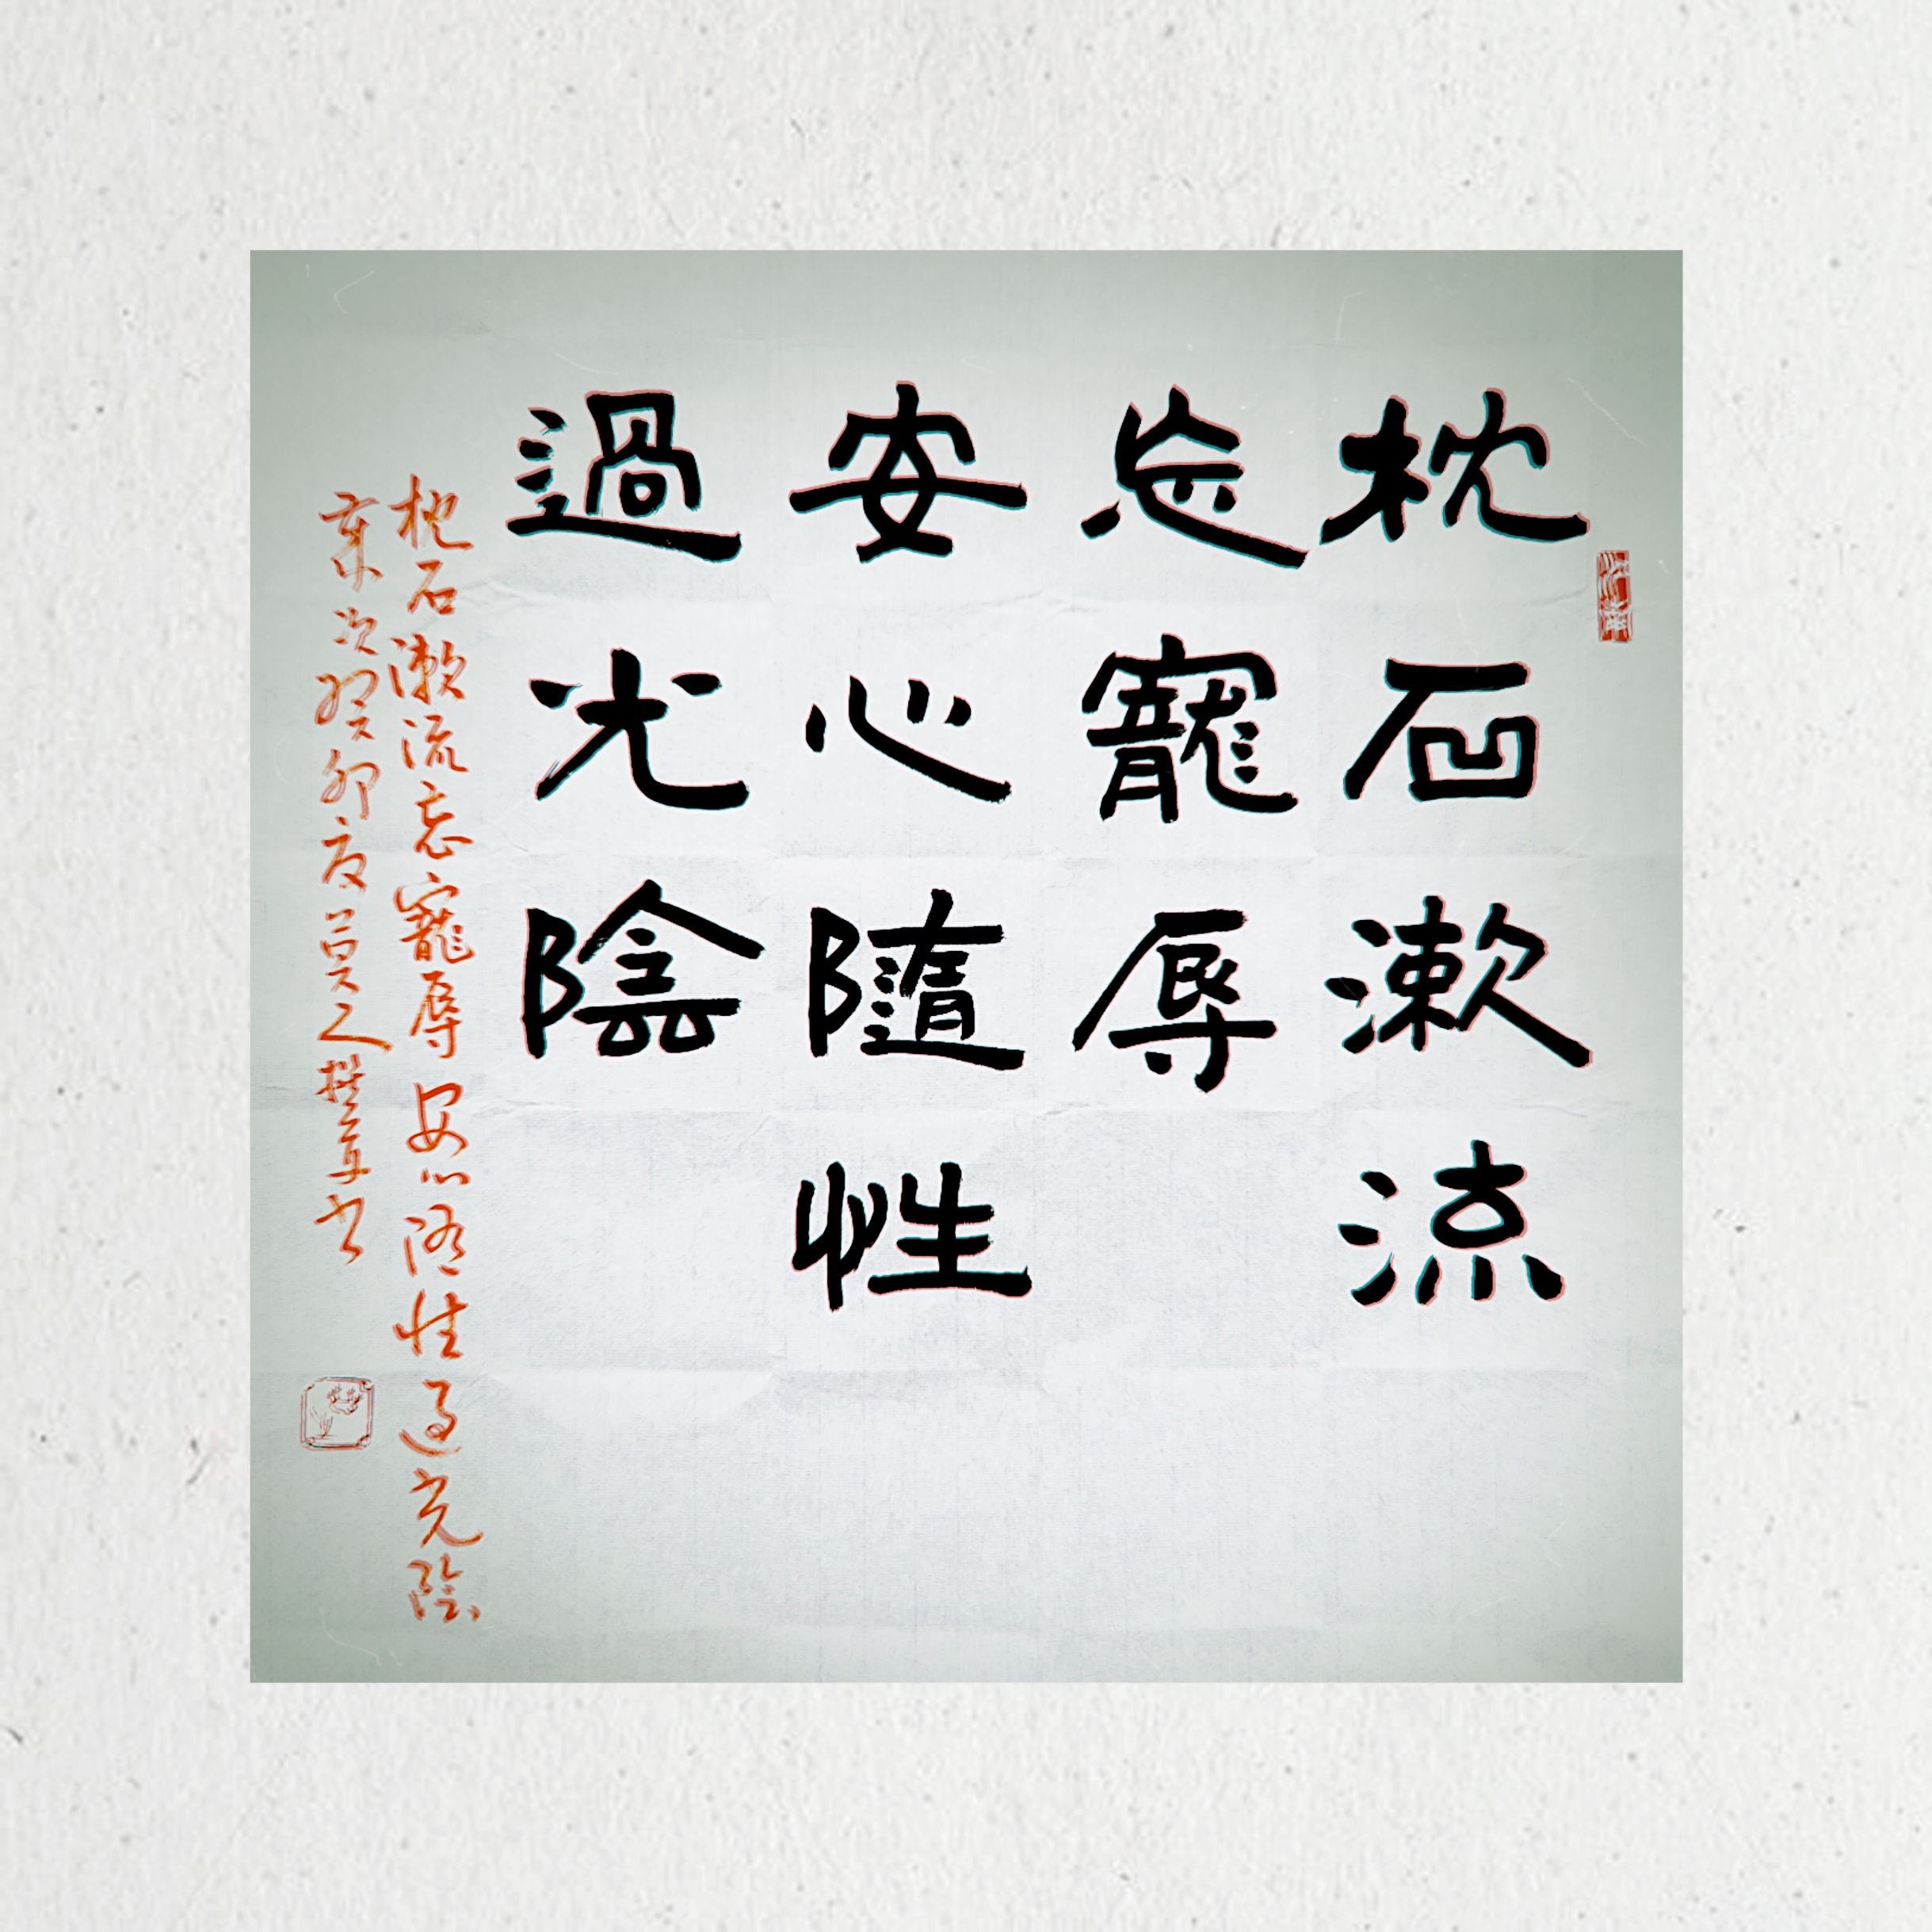 枕石漱流
忘寵辱
安心隨性
過光陰
枕石漱流忘寵辱安心隨性過光陰
歲次癸卯夏吕昊之撰并书